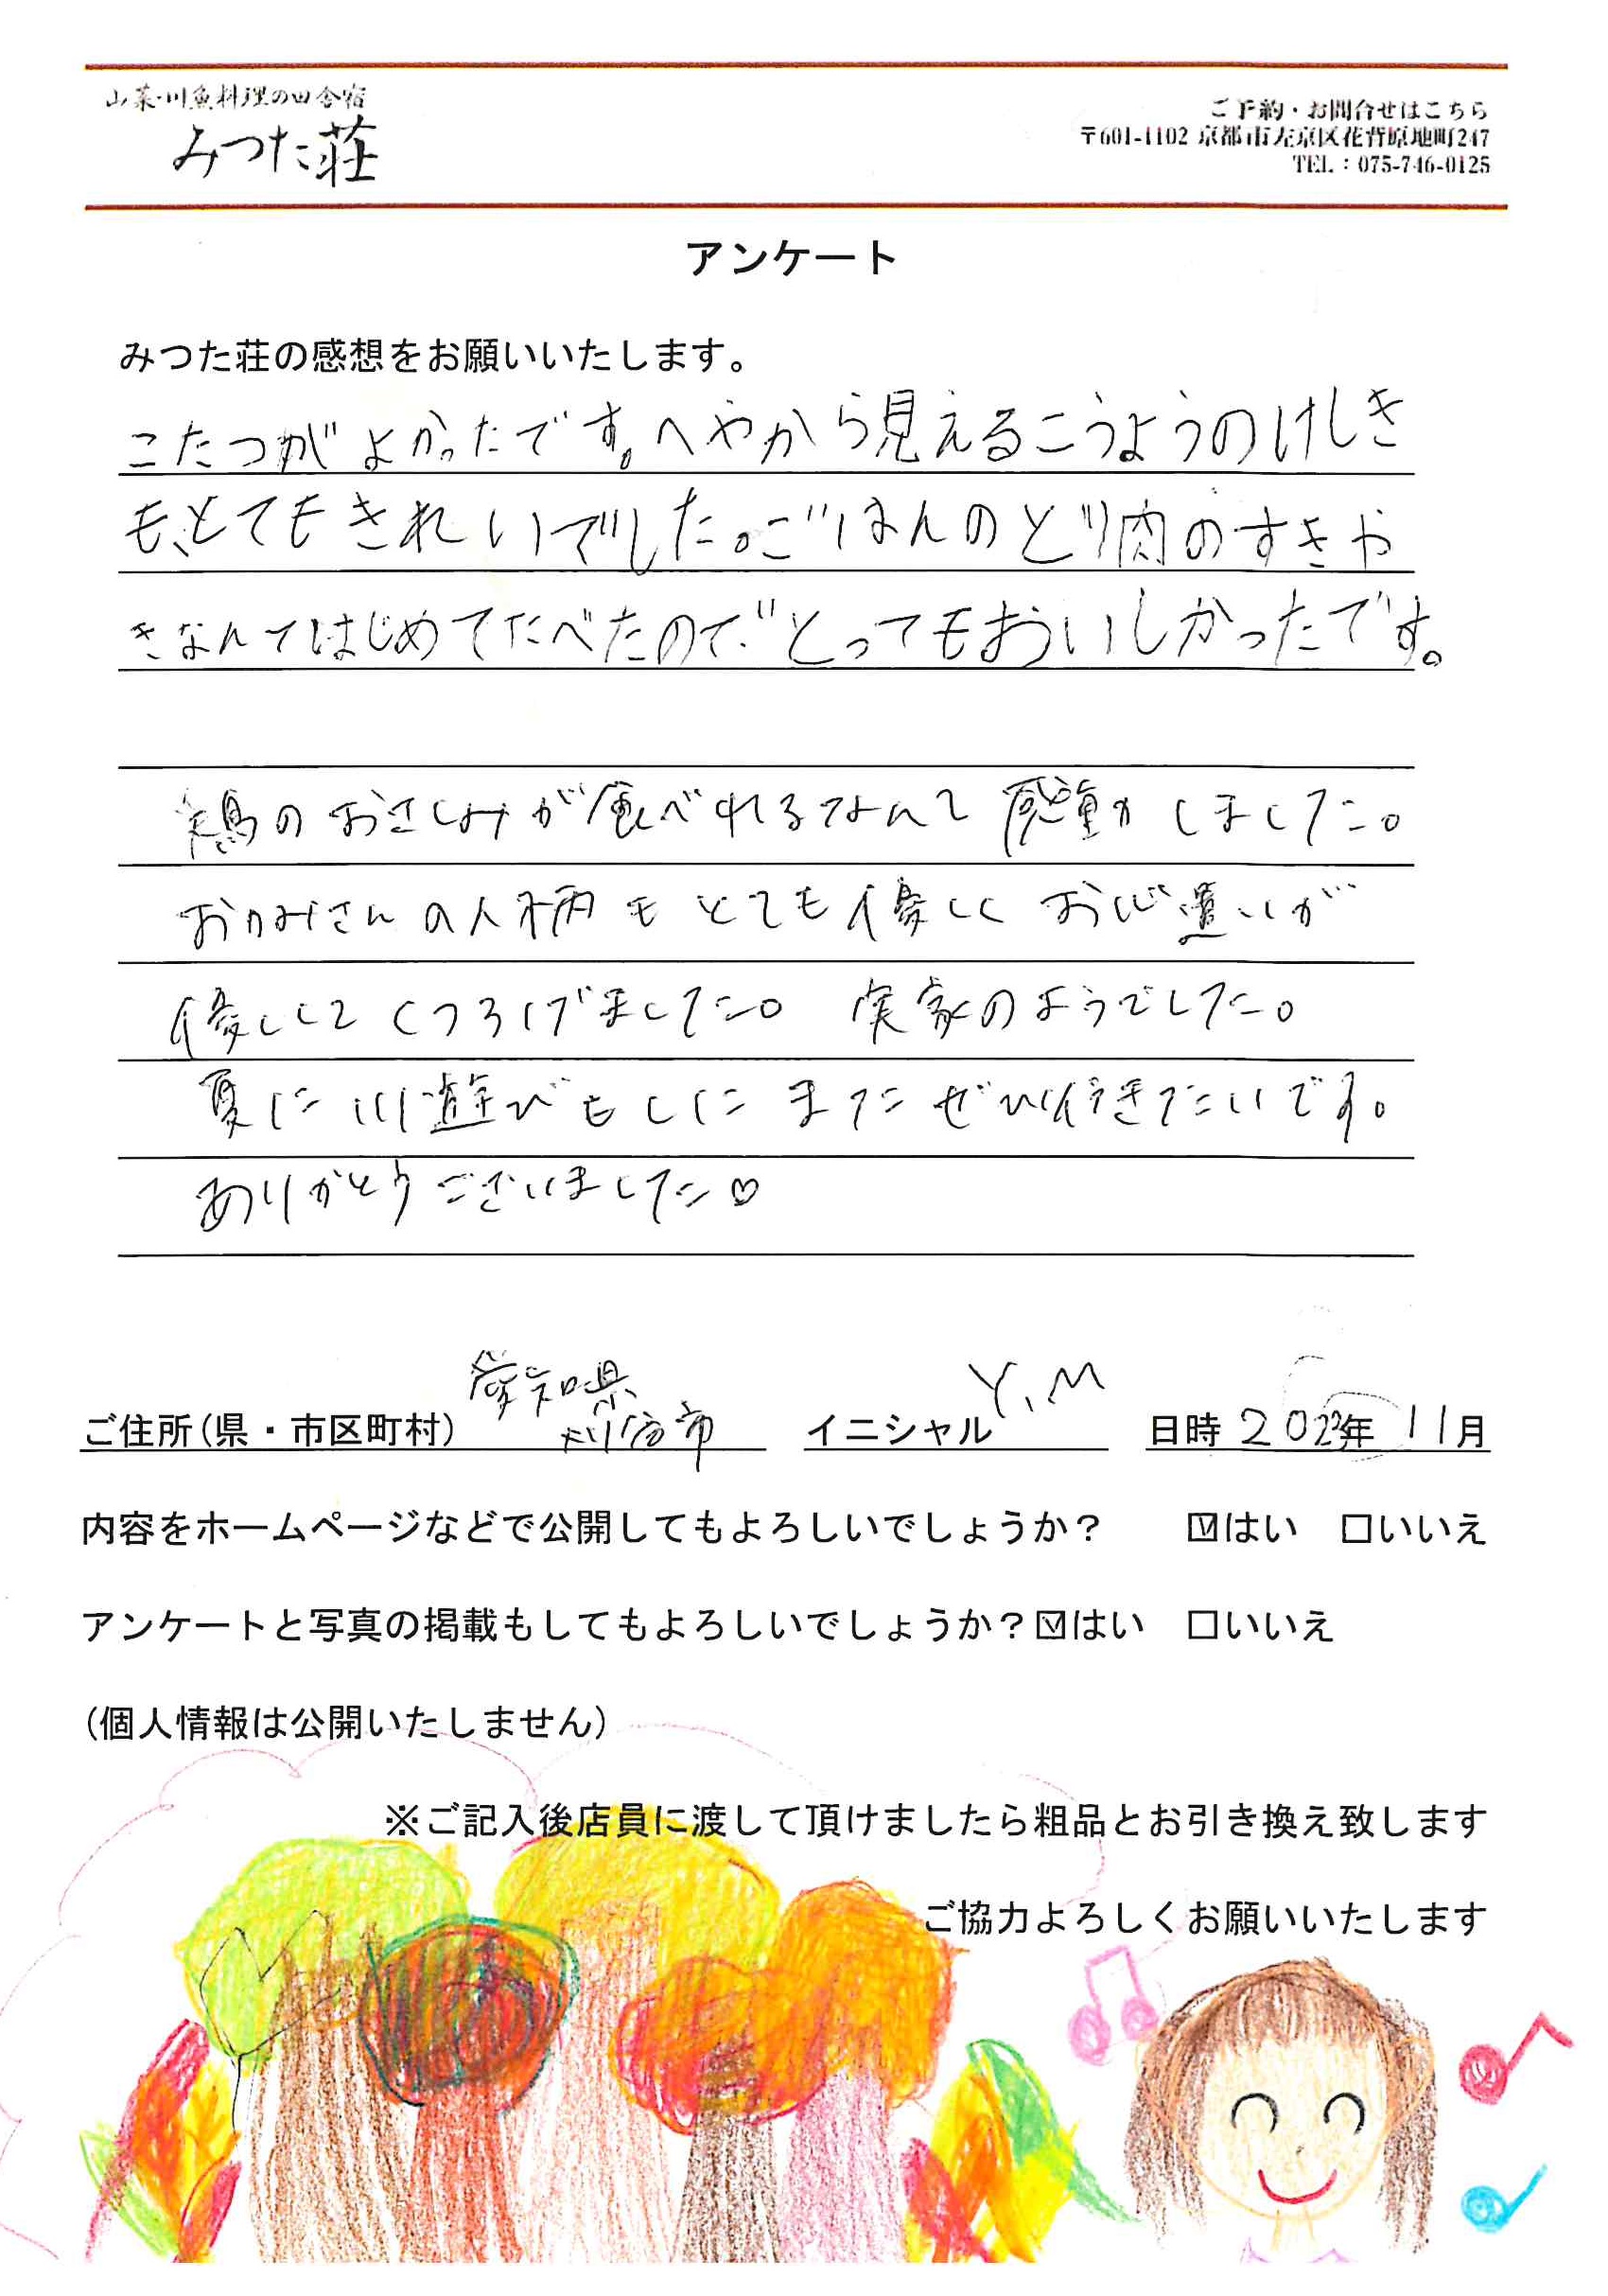 山菜・川魚料理の田舎宿
みつた荘
ご予約・お問合せはこちら
〒601-1102 京都市左京区花背原地町247
TEL：075-746-0125
アンケート
みつた荘の感想をお願いいたします。
こたつがよかったです。へやから見えるこうようのけしき
も、とてもきれいでした。ごはんのとり肉のすきや
きなんてはじめてたべたのでとってもおいしかったです。
鶏のおさしみが食べれるなんて感動しました。
おかみさんの人柄もとても優しくお心遣いが
優しくてくつろげました。 実家のようでした。
夏に川遊びもしにまたぜひ行きたいです。
ありがとうございました♡
ご住所(県・市区町村) 愛知県 刈谷市 イニシャル Y.M 日時 2023年 11月
内容をホームページなどで公開してもよろしいでしょうか？ ☑はい □いいえ
アンケートと写真の掲載もしてもよろしいでしょうか？☑はい □いいえ
(個人情報は公開いたしません)
※ご記入後店員に渡して頂けましたら粗品とお引き換え致します
ご協力よろしくお願いいたします